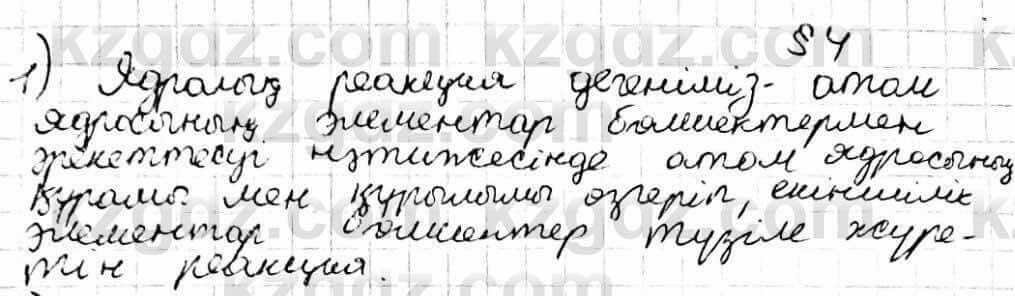 § 4
1) Ядролық реакция дегеніміз - атом
ядросының элементар бөлшектермен
әрекеттесуі нәтижесінде атом ядросының
құрамы мен құрылымы өзгеріп, екіншілік
элементар бөлшектер түзіле жүре-
тін реакция.